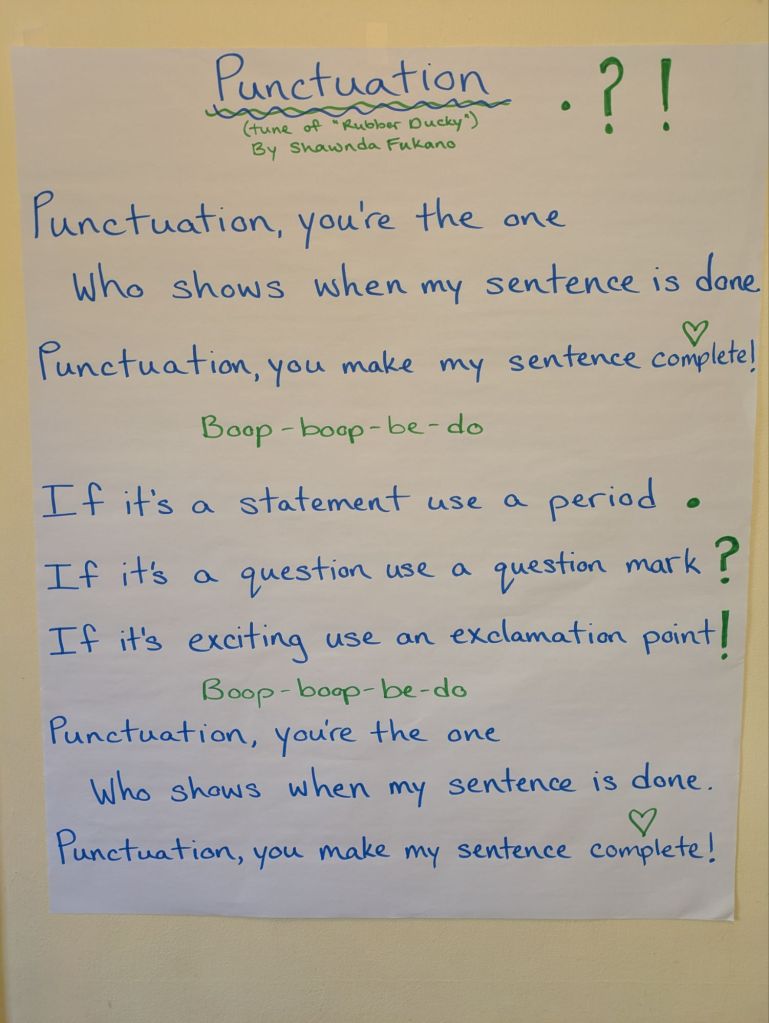 Punctuation . ? !
(tune of "Rubber Ducky")
By Shawnda Fukano
Punctuation, you're the one
Who shows when my sentence is done
Punctuation, you make my sentence complete!
Boop-boop-be-do
If it's a statement use a period .
If it's a question use a question mark ?
If it's exciting use an exclamation point!
Boop-boop-be-do
Punctuation, you're the one
Who shows when my sentence is done.
Punctuation, you make my sentence complete!